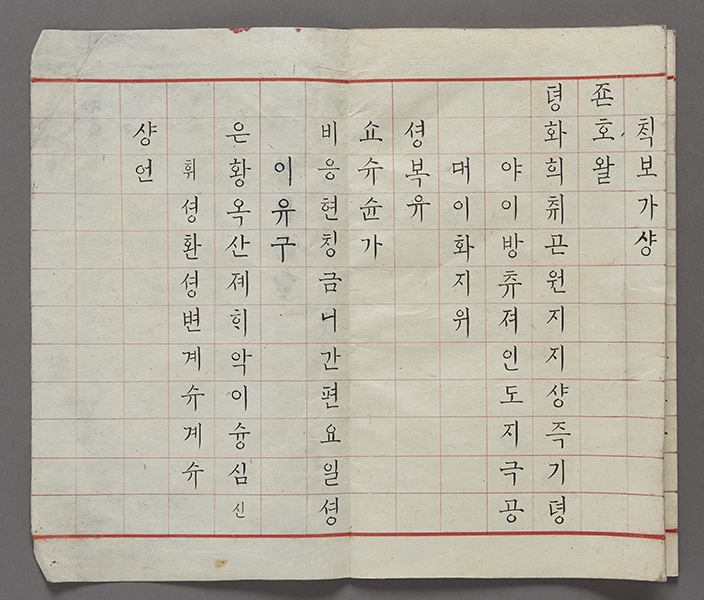 칙보가샹
죤호왈
뎡화희취곤원지지샹즉기뎡
야이방츄져인도지극공
대이화지위
셩복유
쇼슈슌가
비응현칭금니간편요일셩
이유구
은황옥산졔히악이슝심신
휘셩환셩변계슈계슈
샹언